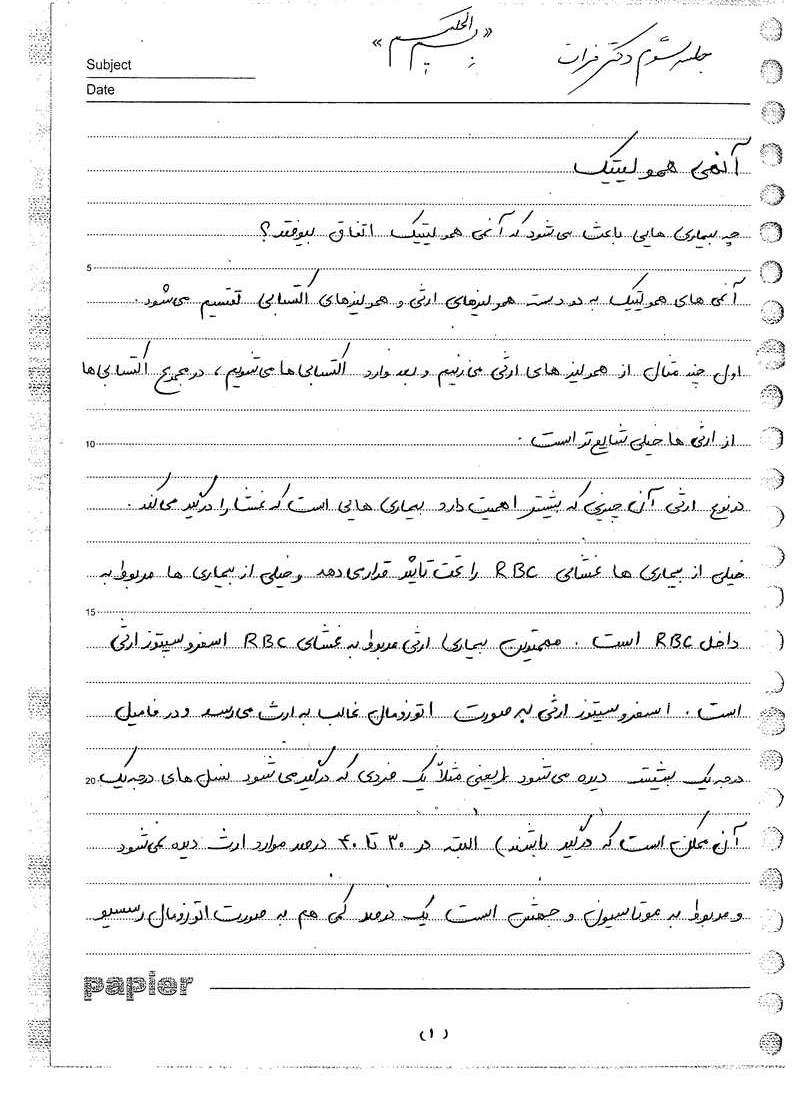 جلسه سوم دکتر فرات
« بسم الحکیم »
Subject
Date
آنمی همولیتیک
چه بیماری هایی باعث می شود که آنمی همولیتیک اتفاق بیوفتد؟
5
آنمی های همولیتیک به دو دسته همولیزهای ارثی و همولیزهای اکتسابی تقسیم می شود.
اول چند مثال از همولیز های ارثی می زنیم و بعد وارد اکتسابی ها می شویم، در مجموع اکتسابی ها
10
از ارثی ها خیلی شایع تر است.
در نوع ارثی آن چیزی که بیشتر اهمیت دارد بیماری هایی است که غشا را درگیر می کند.
خیلی از بیماری ها غشای RBC را تحت تاثیر قرار می دهد و خیلی از بیماری ها مربوط به
15
داخل RBC است. مهمترین بیماری ارثی مربوط به غشای RBC اسفروسیتوز ارثی
است. اسفروسیتوز ارثی به صورت اتوزومال غالب به ارث می رسد و در فامیل
20 درجه یک بیشتر دیده می شود (یعنی مثلاً یک فردی که درگیر می شود نسل های درجه یک
آن ممکن است که درگیر باشند) البته در ۳۰ تا ۴۰ درصد موارد ارث دیده نمی شود
و مربوط به موتاسیون و جهش است یک درصد کمی هم به صورت اتوزومال رسسیو
papier
(۱)